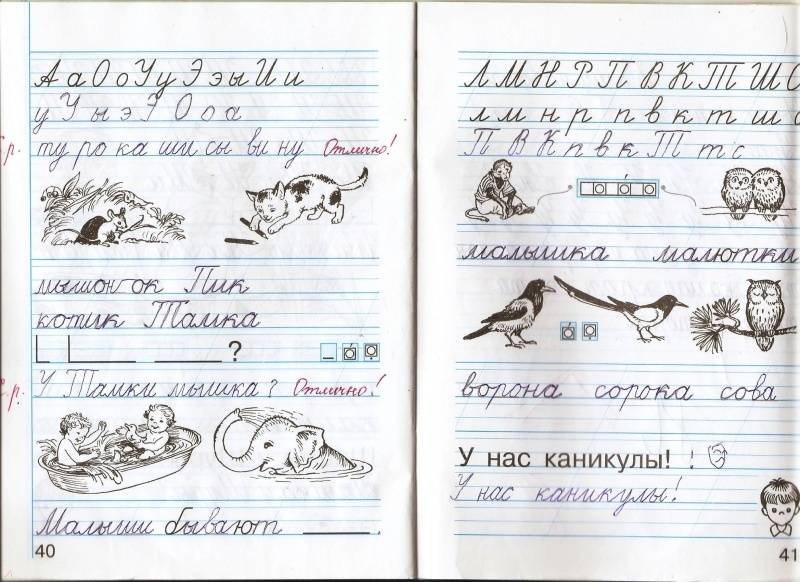 А а О о У у Э э ы И и
у У ы э Э О о а
ту ро ка ши сы ви ну Отлично!
мышонок Пик
котик Тамка
?
У Тамки мышка? Отлично!
Малыши бывают
40
Л М Н Р П В К Т Ш С
л м н р п в к т ш с
П В К п в к Т т с
о о о
малышка малютки
о о
ворона сорока сова
У нас каникулы! !
У нас каникулы!
41